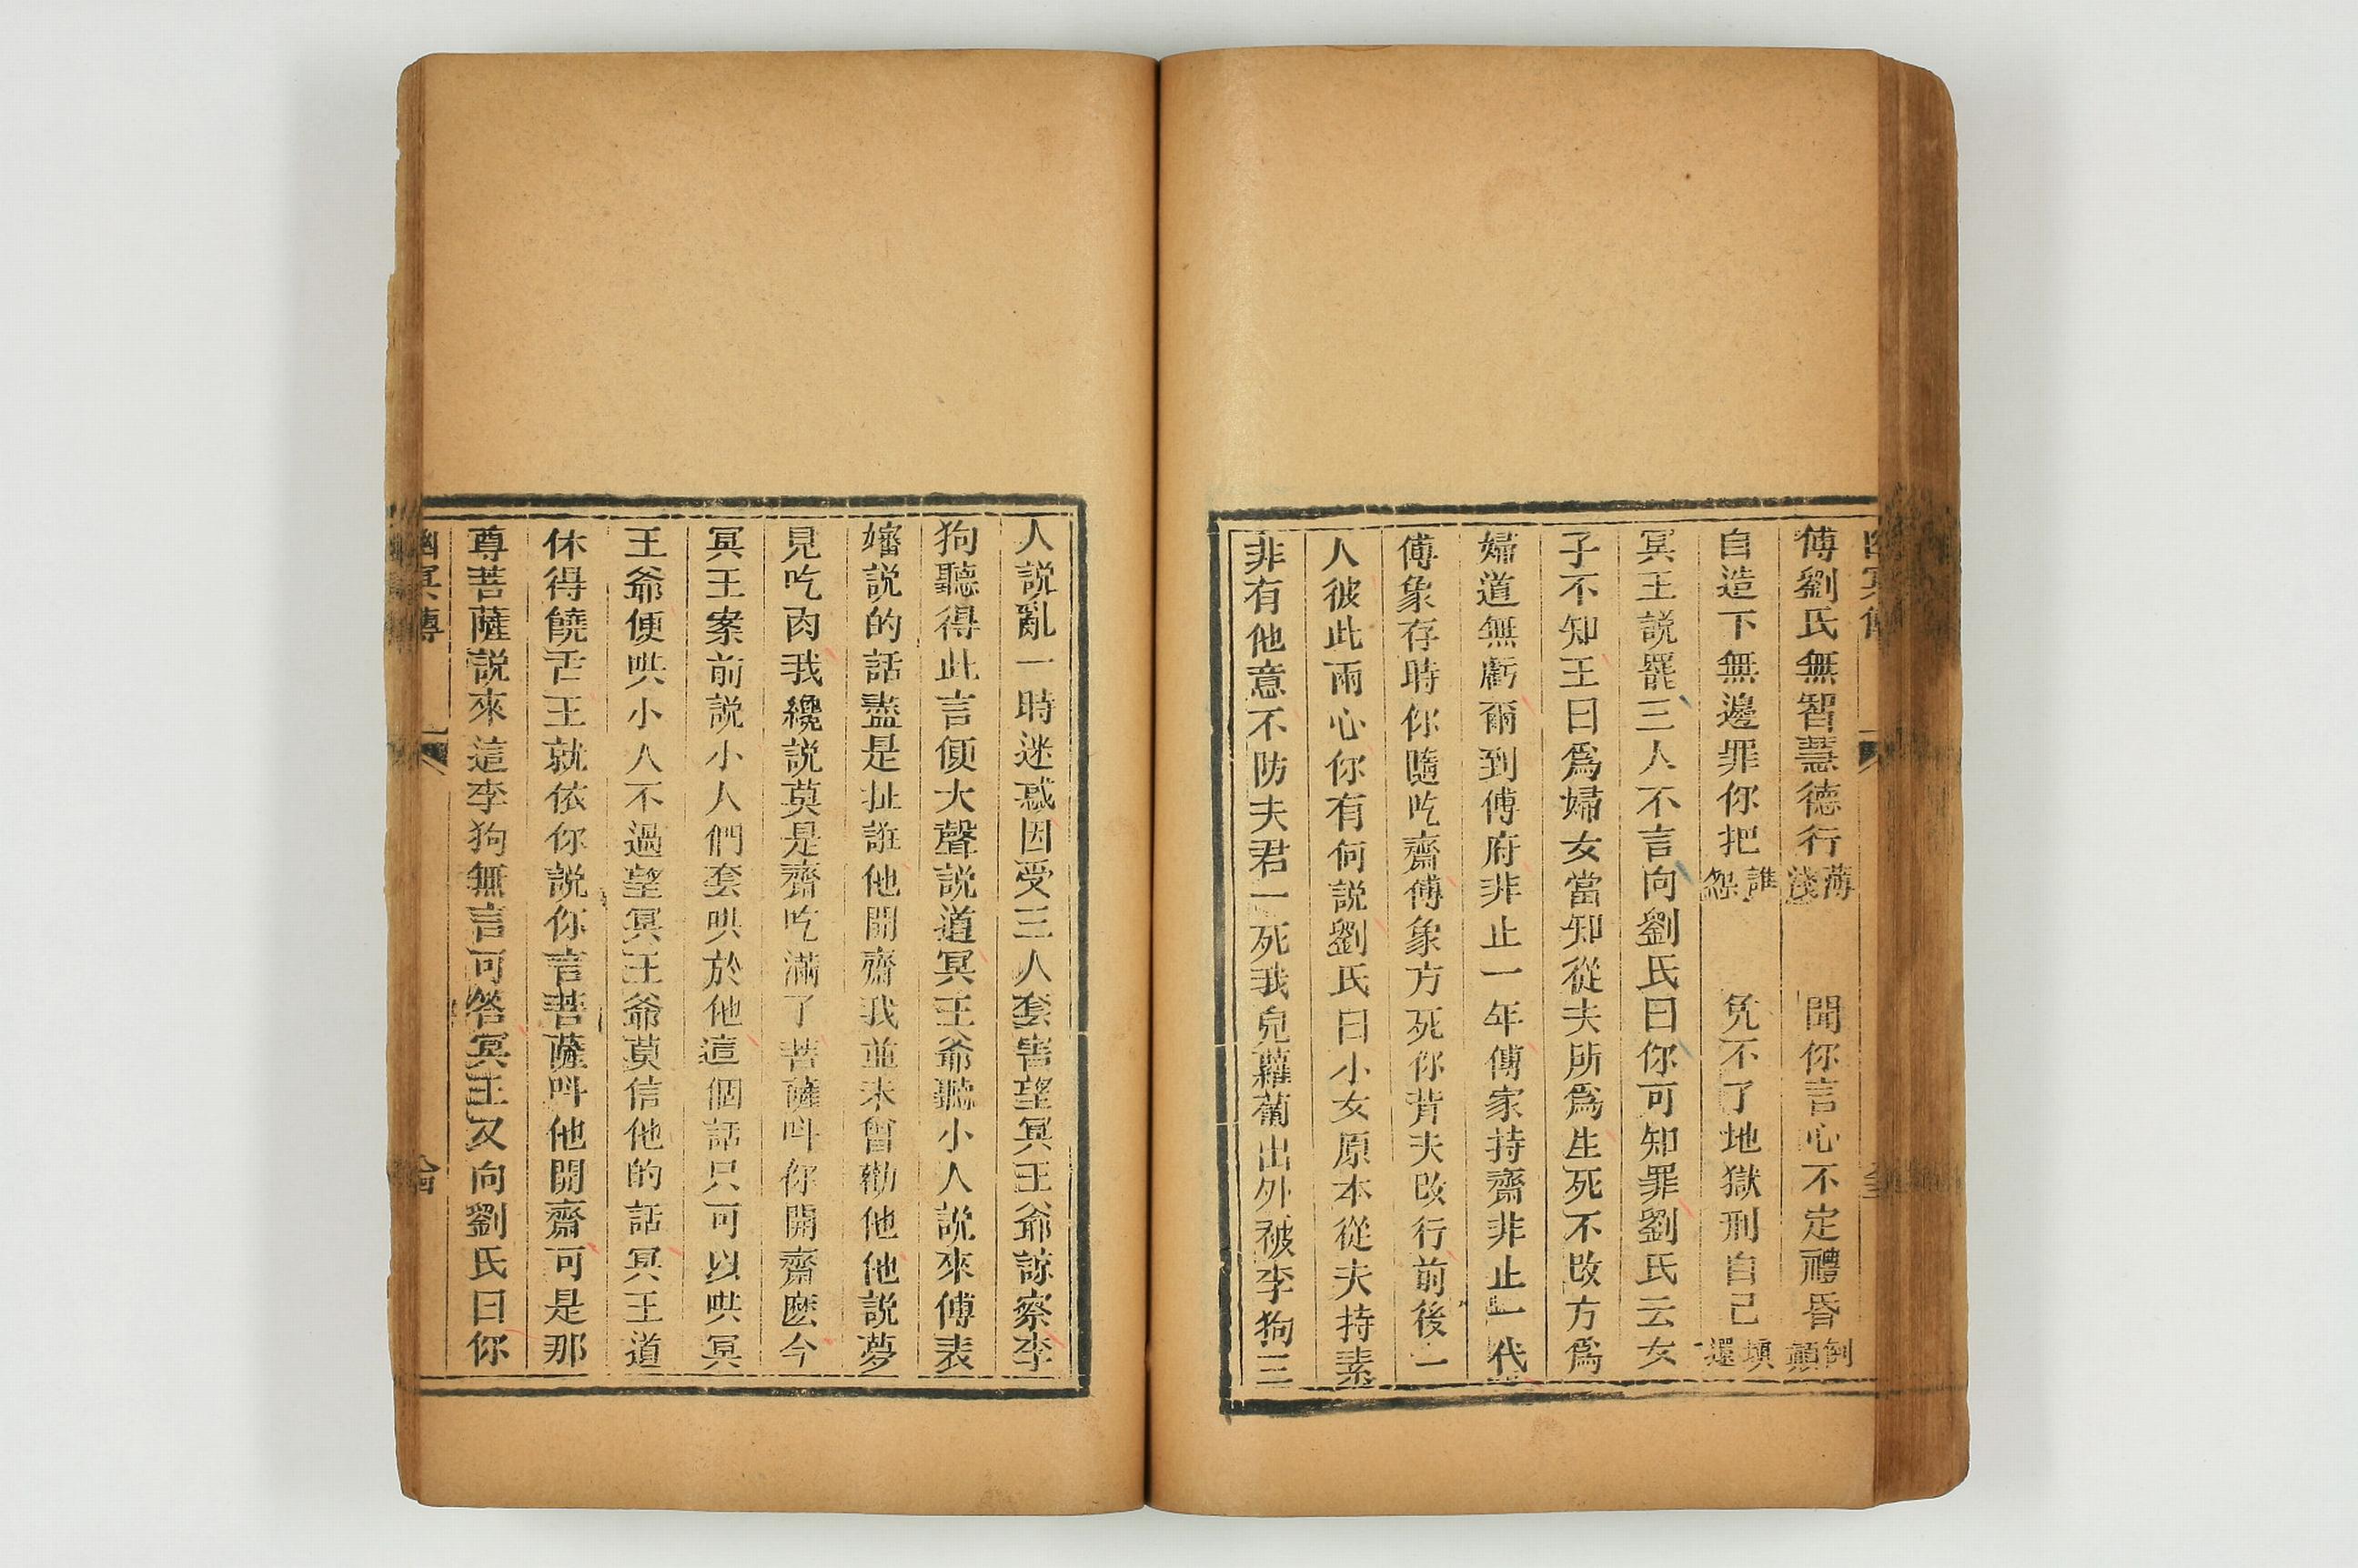 傅劉氏無智慧德行薄淺　聞你言心不定禮昏倒顛
自造下無邊罪你把誰怨　免不了地獄刑自己填還
冥王説罷三人不言向劉氏曰你可知罪劉氏云女
子不知王曰爲婦女當知從夫所爲生死不改方爲
婦道無虧爾到傅府非止一年傅家持齋非止一代
傅象存時你隨吃齋傅象方死你背夫改行前後一
人彼此兩心你有何説劉氏曰小女原本從夫持素
非有他意不防夫君一死我兒蘿蔔出外被李狗三
人説亂一時迷惑因受三人套害望冥王爺諒察李
狗聽得此言便大聲説道冥王爺聽小人説來傅表
嬸説的話盡是扯誑他開齋我並未曾勸他他説夢
見吃肉我纔説莫是齋吃滿了菩薩呌你開齋麽今
冥王案前説小人們套哄於他這個話只可以哄冥
王爺便哄小人不過望冥王爺莫信他的話冥王道
休得饒舌王就依你説你言菩薩呌他開齋可是那
尊菩薩説來這李狗無言可答冥王又向劉氏曰你
幽冥傳